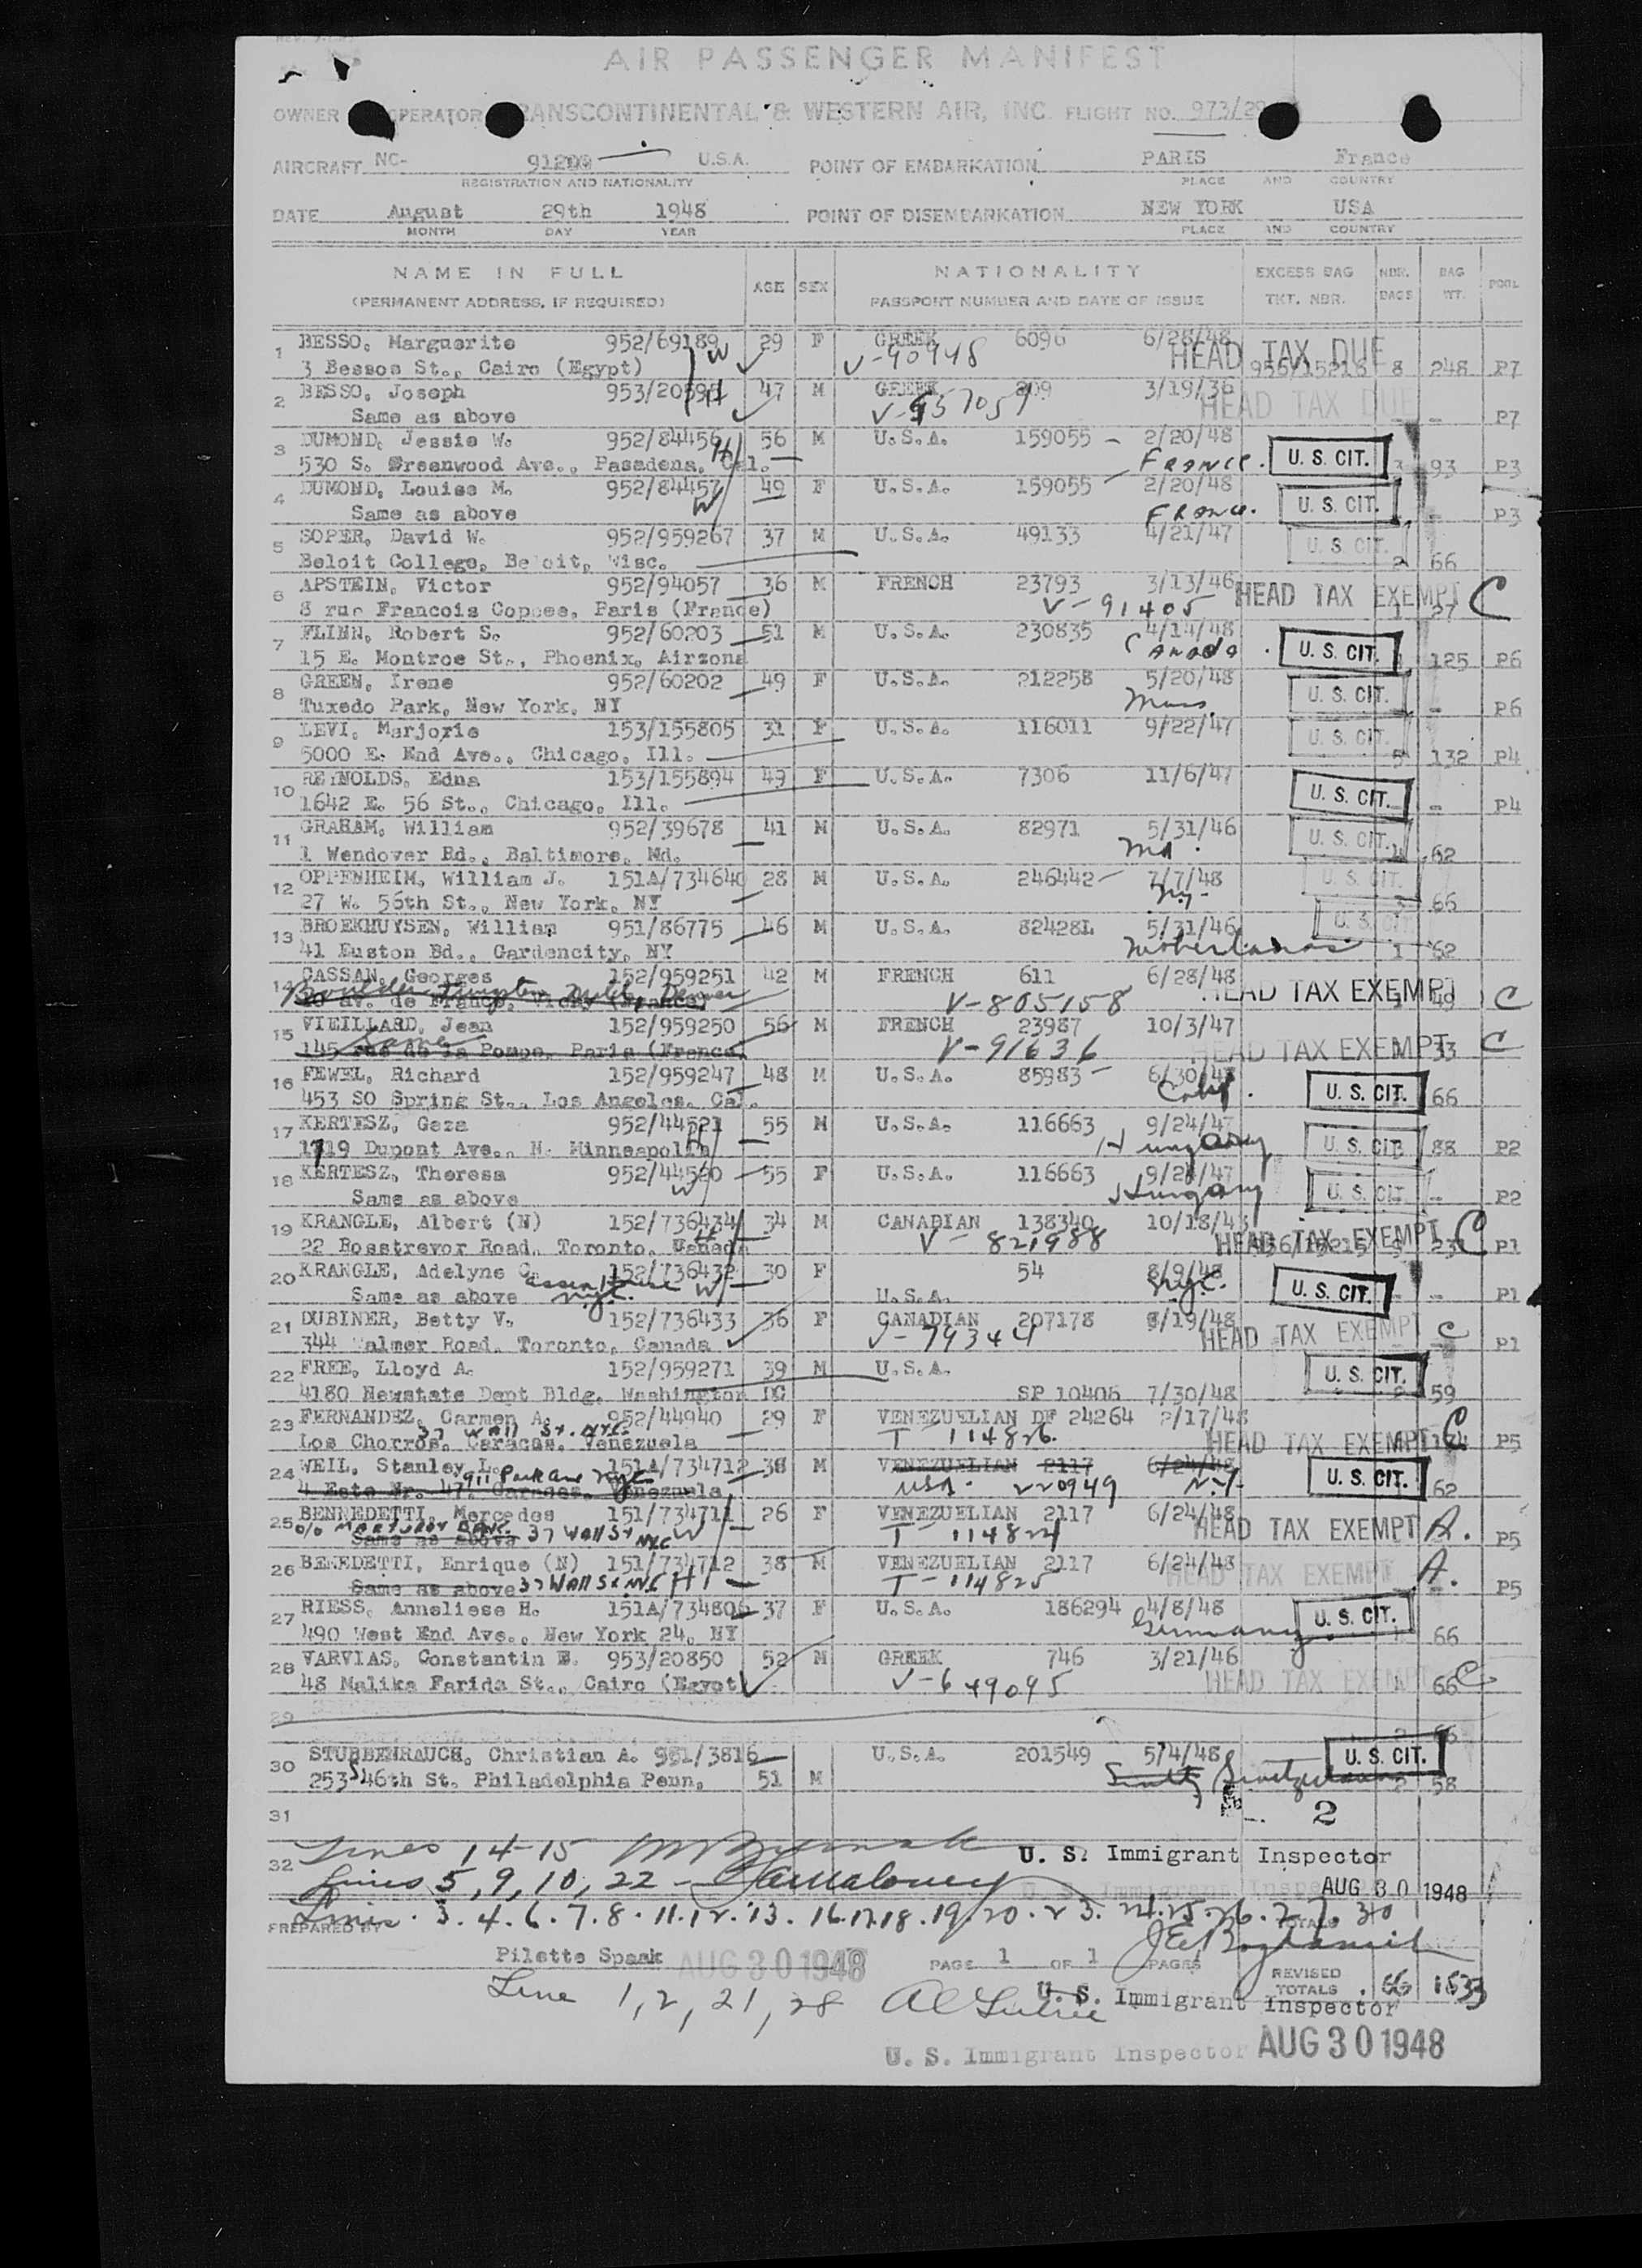 AIR PASSENGER MANIFEST
OWNER OPERATOR TRANSCONTINENTAL & WESTERN AIR, INC. FLIGHT NO. 973/29
AIRCRAFT NC- U.S.A. POINT OF EMBARKATION PARIS France
REGISTRATION AND NATIONALITY PLACE AND COUNTRY
DATE August 29th 1948 POINT OF DISEMBARKATION NEW YORK USA
MONTH DAY YEAR PLACE AND COUNTRY
NAME IN FULL AGE SEX NATIONALITY EXCESS BAG NBR. BAG POOL
(PERMANENT ADDRESS, IF REQUIRED) PASSPORT NUMBER AND DATE OF ISSUE TKT. NBR. BAGS WT.
1 BESSO, Marguerite 952/69189 W 29 F GREEK 6096 6/28/48 HEAD TAX DUE
3 Bessos St., Cairo (Egypt) V-90948 956/15218 8 248 P7
2 BESSO, Joseph H 47 M GREEK 209 3/19/36 HEAD TAX DUE
Same as above - P7
3 DUMOND, Jessie W. 952/84456 H 56 M U.S.A. 159055 - 2/20/48
530 S. Greenwood Ave., Pasadena, Cal. FRANCE. U. S. CIT. 3 93 P3
4 DUMOND, Louise M. 952/84457 W 49 F U.S.A. 159055 2/20/48
Same as above FRANCE. U. S. CIT. - P3
5 SOPER, David W. 952/959267 37 M U.S.A. 49133 4/21/47
Beloit College, Beloit, Wisc. U. S. CIT. 2 66
6 APSTEIN, Victor 952/94057 36 M FRENCH 23793 3/13/46 HEAD TAX EXEMPT C
8 rue Francois Coppee, Paris (France) V-91405 1 27
7 FLINN, Robert S. 952/60203 51 M U.S.A. 230835 4/14/48
15 E. Montroe St., Phoenix, Airzona Canada. U. S. CIT. 125 P6
8 GREEN, Irene 952/60202 49 F U.S.A. 212258 5/20/48
Tuxedo Park, New York, NY Mass. U. S. CIT. - P6
9 LEVI, Marjorie 153/155805 31 F U.S.A. 116011 9/22/47
5000 E. End Ave., Chicago, Ill. U. S. CIT. 5 132 P4
10 REYNOLDS, Edna 153/155894 49 F U.S.A. 7306 11/6/47
1642 E. 56 St., Chicago, Ill. U. S. CIT. - P4
11 GRAHAM, William 952/39678 41 M U.S.A. 82971 5/31/46
1 Wendover Rd., Baltimore, Md. Md. U. S. CIT. 62
12 OPPENHEIM, William J. 151A/734640 28 M U.S.A. 246442 - 7/7/48
27 W. 56th St., New York, NY NY- U. S. CIT. 3 66
13 BROEKHUYSEN, William 951/86775 46 M U.S.A. 82428L 5/31/46
41 Euston Bd., Gardencity, NY Netherlands U. S. CIT. 1 62
14 CASSAN, Georges 152/959251 42 M FRENCH 611 6/28/48
av. de France, Vichy (France) V-805158 HEAD TAX EXEMPT 49 C
15 VIEILLARD, Jean 152/959250 56 M FRENCH 23987 10/3/47
Same
145 rue de la Pompe, Paris (France) V-91636 HEAD TAX EXEMPT 33 C
16 FEWEL, Richard 152/959247 48 M U.S.A. 85983 - 6/30/47
453 SO Spring St., Los Angeles, Cal. Calif. U. S. CIT. 66
17 KERTESZ, Geza 952/44521 H 55 M U.S.A. 116663 9/24/47
1719 Dupont Ave., N. Minneapolis Hungary U. S. CIT. 88 P2
18 KERTESZ, Theresa 952/44520 W 55 F U.S.A. 116663 9/24/47
Same as above Hungary U. S. CIT. - P2
19 KRANGLE, Albert (N) 152/736434 H 34 M CANADIAN 138340 10/18/43
22 Rosstrevor Road, Toronto, Canada V-821988 HEAD TAX EXEMPT C 956/15215 P1
20 KRANGLE, Adelyne C. 152/736432 W 30 F 54 8/9/48
Same as above Essex House NYC. U.S.A. NYC. U. S. CIT. - P1
21 DUBINER, Betty V. 152/736433 36 F CANADIAN 207178 /19/48
344 Walmer Road, Toronto, Canada V-79344 HEAD TAX EXEMPT C P1
22 FREE, Lloyd A. 152/959271 39 M U.S.A. U. S. CIT.
4180 Newstate Dept Bldg. Washington DC SP 10406 7/30/48 2 59
23 FERNANDEZ, Carmen A. 952/44940 29 F VENEZUELIAN DF 24264 2/17/48
37 WALL ST. NYC
Los Chorros, Caracas, Venezuela T 114826. HEAD TAX EXEMPT C P5
24 WEIL, Stanley L. 151A/734712 38 M VENEZUELIAN 2117 6/24/48
911 Park Ave NYC
4 Este Nr. 47 Caracas, Venezuela USA. 220949 N.Y. U. S. CIT. 62
25 BENNEDETTI, Mercedes 151/734711 W 26 F VENEZUELIAN 2117 6/24/48
Same as above 37 Wall St NYC T 114824 HEAD TAX EXEMPT A. P5
26 BENEDETTI, Enrique (N) 151/734712 H 38 M VENEZUELIAN 2117 6/24/48
Same as above 37 Wall St NYC T-114825 HEAD TAX EXEMPT A. P5
27 RIESS, Anneliese H. 151A/734806 37 F U.S.A. 186294 4/8/48
490 West End Ave., New York 24, NY Germany. U. S. CIT. 1 66
28 VARVIAS, Constantin E. 953/20850 52 M GREEK 746 3/21/46
48 Malika Farida St., Cairo (Egypt) V-649095 HEAD TAX EXEMPT 66 C
29
30 STUBBENRAUCH, Christian A. 951/3816 U.S.A. 201549 5/4/48 U. S. CIT.
253 S 46th St. Philadelphia Penn. 51 M Switzerland 2 58
31 2
32 Lines 14-15 U. S. Immigrant Inspector
Lines 5, 9, 10, 22 - U. S. Immigrant Inspector AUG 30 1948
Lines . 3. 4. 6. 7. 8. 11. 12. 13. 16. 17. 18. 19. 20. 23. 24. 25. 26. 27. 30
PREPARED BY TOTALS
Pilette Spaak AUG 30 1948 PAGE 1 OF 1 PAGES
REVISED TOTALS 66 1533
Line 1, 2, 21, 28 U. S. Immigrant Inspector
U. S. Immigrant Inspector AUG 30 1948